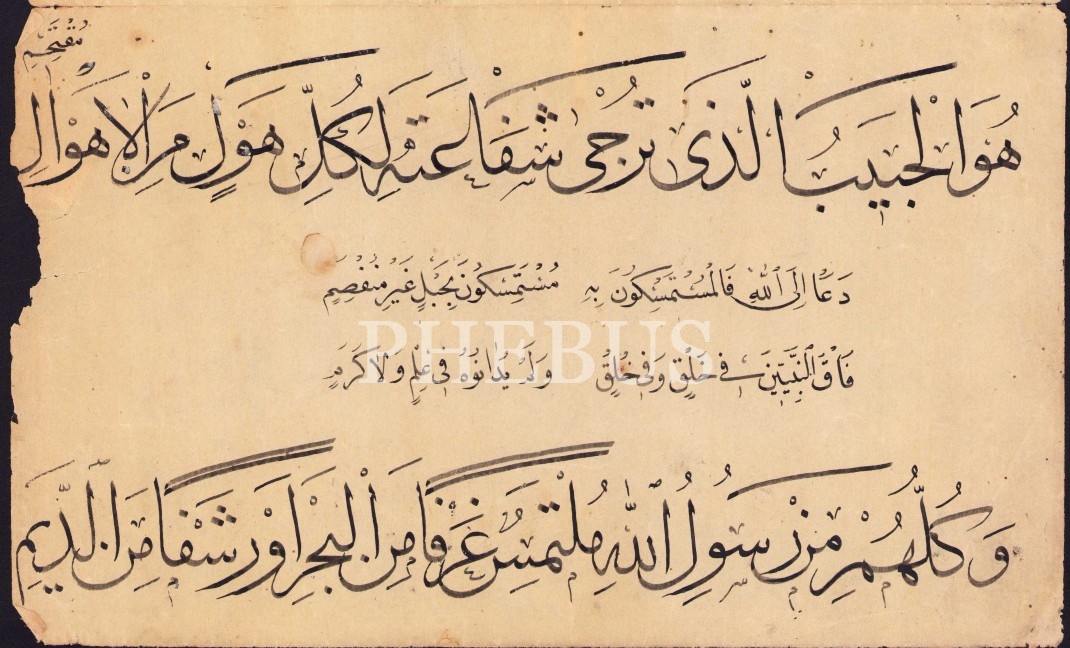 هُوَ الْحَبِيبُ الَّذِي تُرْجٰى شَفَاعَتُهُ لِكُلِّ هَوْلٍ مِنَ الْاَهْوَالِ مُقْتَحَمِ
دَعَا اِلَى اللّٰهِ فَالْمُسْتَمْسِكُونَ بِهِ مُسْتَمْسِكُونَ بِحَبْلٍ غَيْرِ مُنْفَصِمِ
فَاقَ النَّبِيّٖينَ فِي خَلْقٍ وَفِي خُلُقٍ وَلَمْ يُدَانُوهُ فِي عِلْمٍ وَلَا كَرَمِ
وَكُلُّهُمْ مِنْ رَسُولِ اللّٰهِ مُلْتَمِسٌ غَرْفًا مِنَ الْبَحْرِ اَوْ رَشْفًا مِنَ الدِّيَمِ
PHEBUS